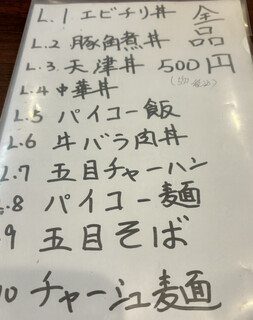 L.1 エビチリ丼
L.2 豚角煮丼
L.3 天津丼
L.4 中華丼
L.5 パイコー飯
L.6 牛バラ肉丼
L.7 五目チャーハン
L.8 パイコー麺
9 五目そば
10 チャーシュ麺
全品
500円